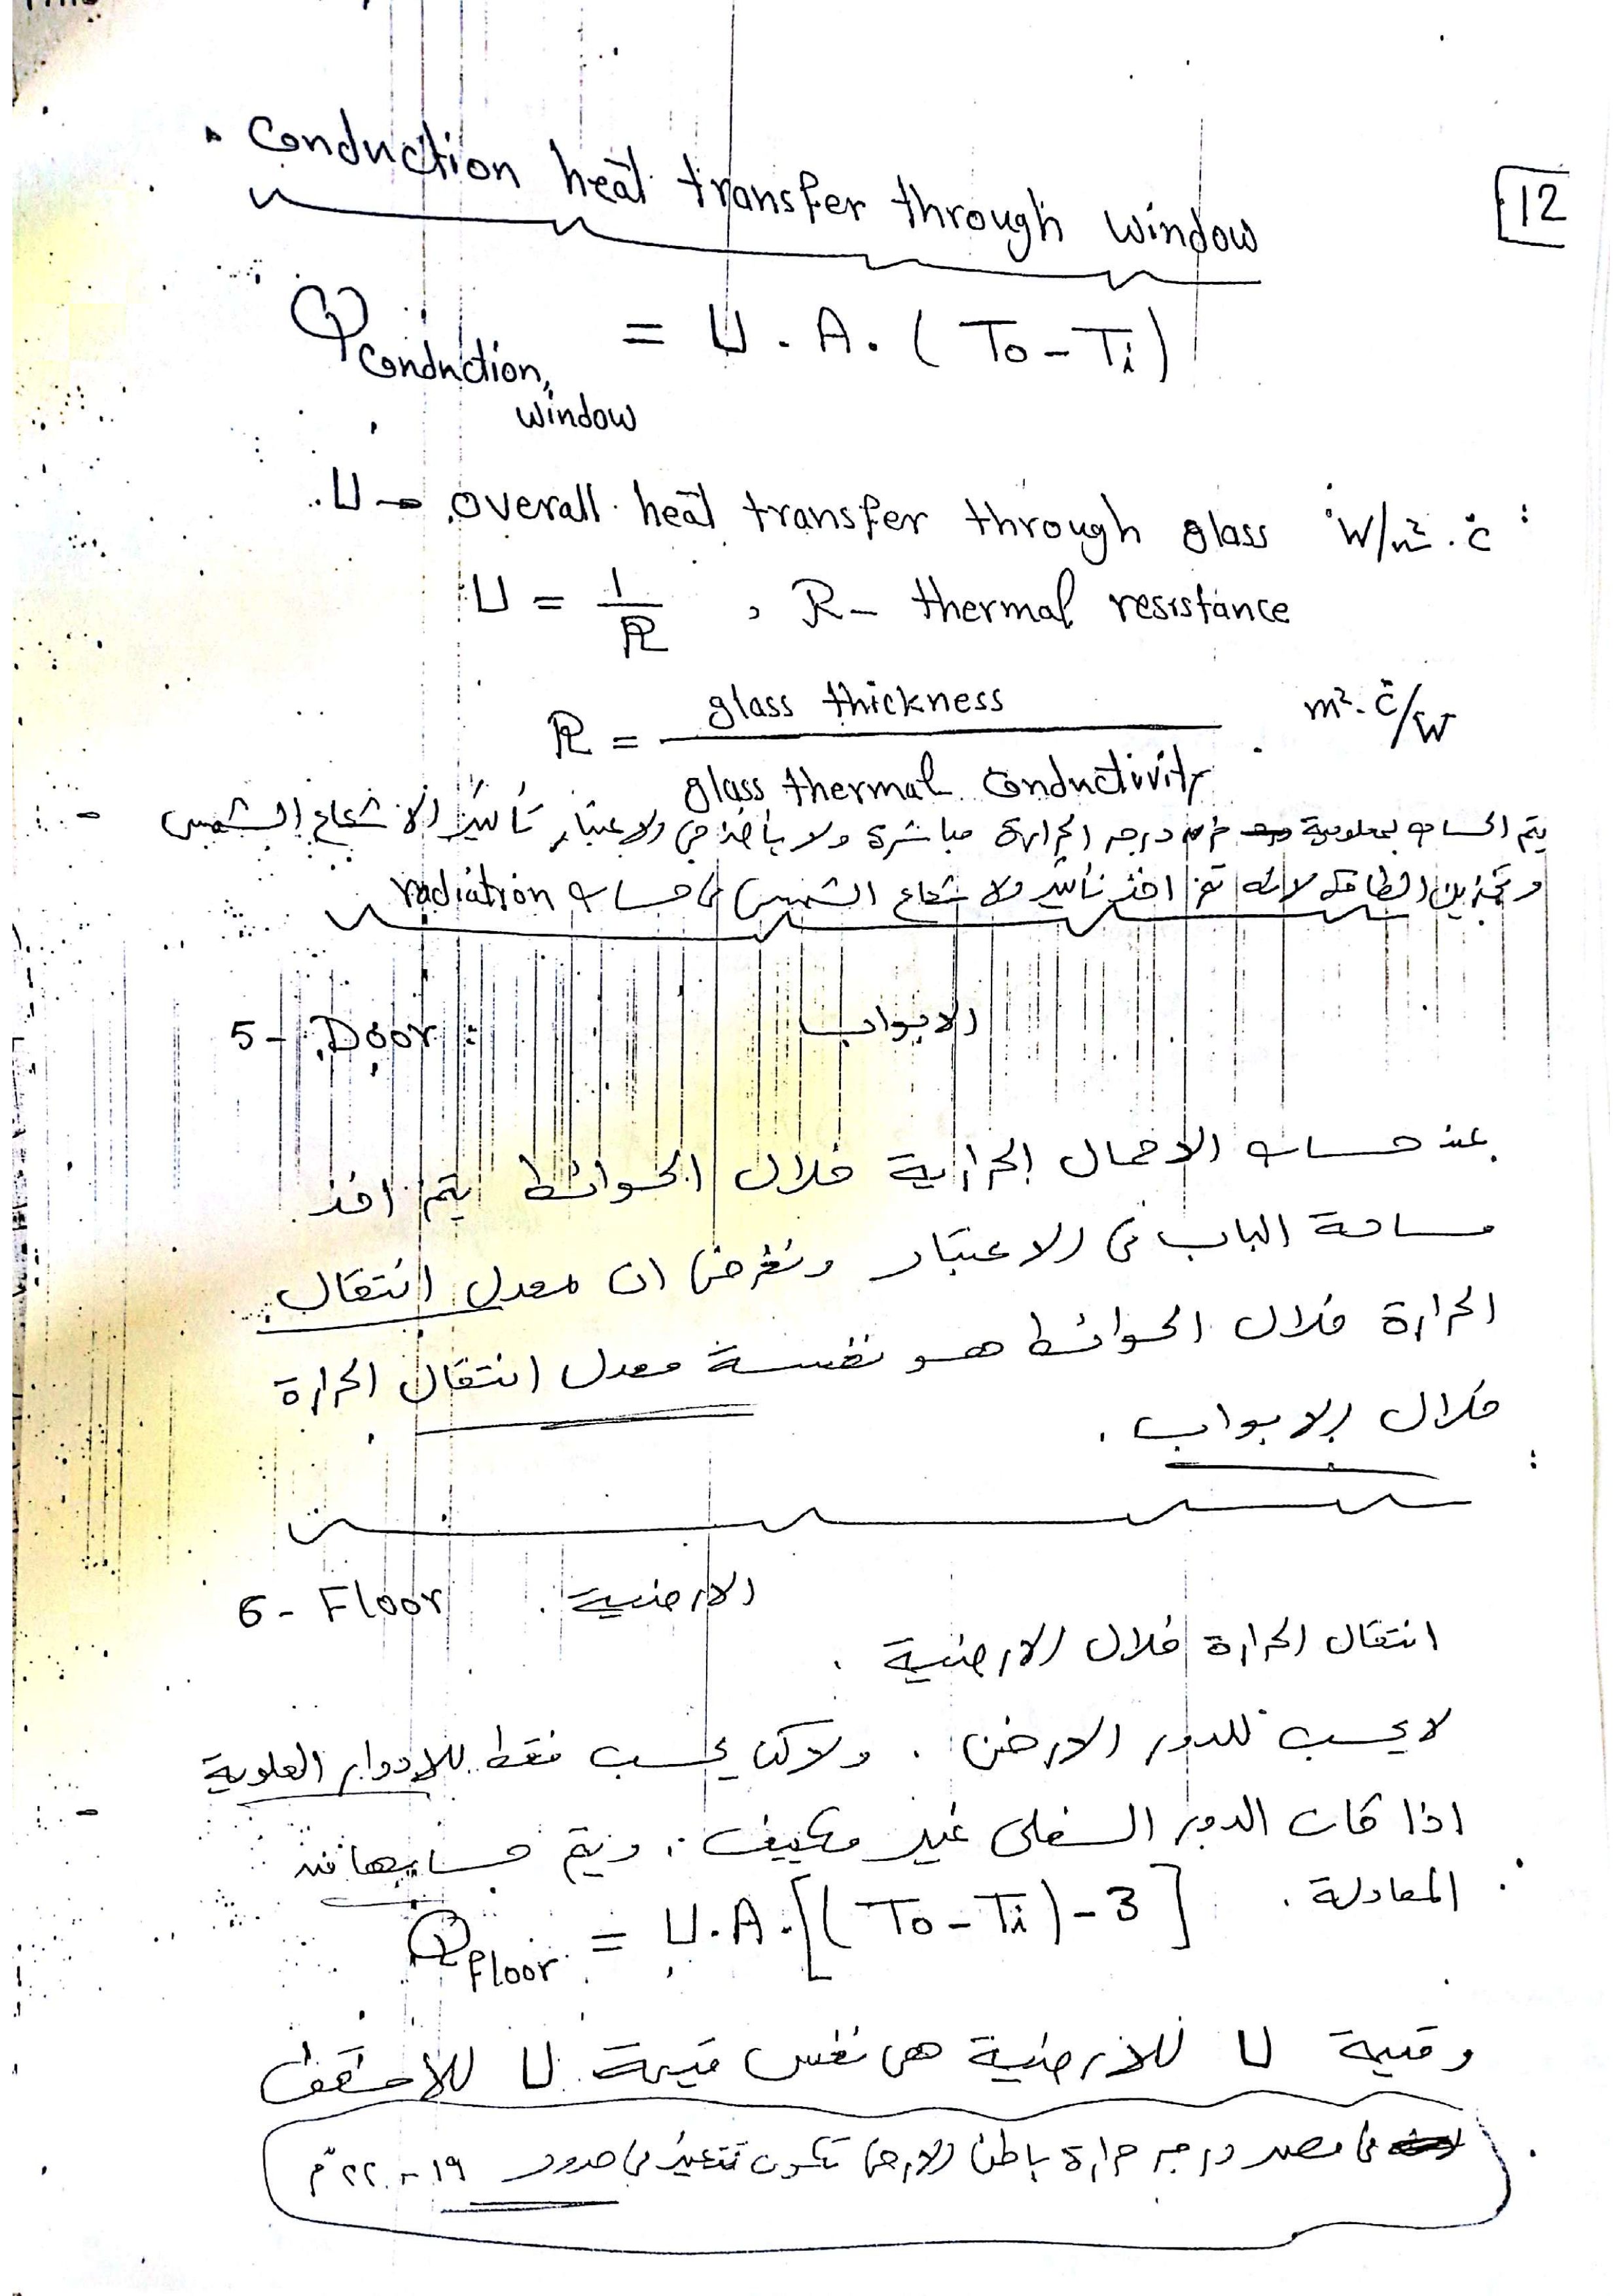 Conduction heat transfer through window
12
Q conduction, window = U . A . ( To - Ti )
U → overall heat transfer through glass W/m² . c°
U = 1/R , R - thermal resistance
R = glass thickness / glass thermal conductivity m² . c°/W
- يتم الحساب بمعلومية فرق درجه الحرارة مباشرة ولا يأخذ فى الاعتبار تأثير الاشعاع الشمسى
وتخزين الطاقه لانه تم اخذ تأثير الاشعاع الشمسى فى حساب radiation
5- Door : الابواب
عند حساب الاحمال الحرارية خلال الحوائط يتم اخذ
مساحة الباب فى الاعتبار ونفرض ان معدل انتقال
الحرارة خلال الحوائط هو نفسة معدل انتقال الحرارة
خلال الابواب .
6- Floor الارضية .
انتقال الحرارة خلال الارضية .
لا يحسب للدور الارضى . ولاكن يحسب فقط للادوار العلوية
- اذا كان الدور السفلى غير مكيف . ويتم حسابها من
المعادلة .
Q Floor = U.A.[( To - Ti ) - 3 ]
وقيمة U للارضية هى نفس قيمة U للاسقف
فى مصر درجه حرارة باطن الارض تكون تتغير فى حدود ١٩ - ٢٢ °م